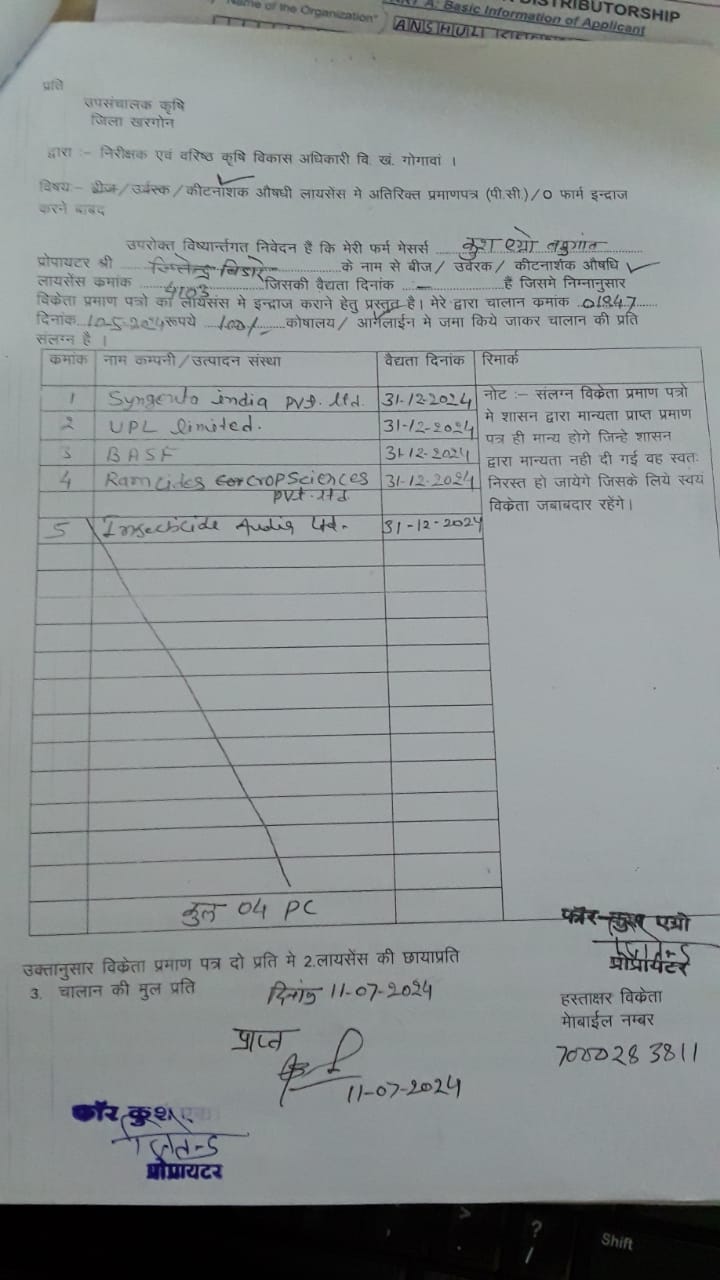 Name of the Organization"
A. Basic Information of Applicant
ANSHUL
प्रति
उपसंचालक कृषि
जिला खरगोन
द्वारा :- निरीक्षक एवं वरिष्ठ कृषि विकास अधिकारी वि. खं. गोगावां ।
विषय:- बीज/उर्वरक/कीटनाशक औषधी लायसेंस मे अतिरिक्त प्रमाणपत्र (पी.सी.)/O फार्म इन्द्राज
करने बाबद
उपरोक्त विष्यार्न्तगत निवेदन है कि मेरी फर्म मेसर्स कुश एग्रो
प्रोपायटर श्री जितेन्द्र के नाम से बीज/ उर्वरक/ कीटनाशक औषधि
लायसेंस कमांक 4103 जिसकी वैद्यता दिनांक :- है जिसमे निम्नानुसार
विकेता प्रमाण पत्रो का लायसेंस मे इन्द्राज कराने हेतु प्रस्तुत है। मेरे द्वारा चालान कमांक 01847
दिनांक 10-5-2024 रूपये 100/- कोषालय/ आनॅलाईन मे जमा किये जाकर चालान की प्रति
संलग्न है ।
कमांक नाम कम्पनी/उत्पादन संस्था वैद्यता दिनांक रिमार्क
1 Syngenta india pvt. ltd. 31-12-2024 नोट :- संलग्न विकेता प्रमाण पत्रो
2 UPL limited. 31-12-2024 मे शासन द्वारा मान्यता प्राप्त प्रमाण
पत्र ही मान्य होगे जिन्हे शासन
3 BASF 31-12-2024 द्वारा मान्यता नही दी गई वह स्वतः
4 Ramcides CropSciences 31-12-2024 निरस्त हो जायेगे जिसके लिये स्वयं
pvt. ltd विकेता जबाबदार रहेंगे।
5 Insecticide India Ltd. 31-12-2024
कुल 04 PC
फॉर-कुश एग्रो
प्रोप्रायटर
उक्तानुसार विकेता प्रमाण पत्र दो प्रति मे 2.लायसेंस की छायाप्रति
3. चालान की मुल प्रति दिनांक 11-07-2024
हस्ताक्षर विकेता
मेाबाईल नम्बर
7000283811
प्राप्त
11-07-2024
फॉर कुश
प्रोप्रायटर
?
/
Shift